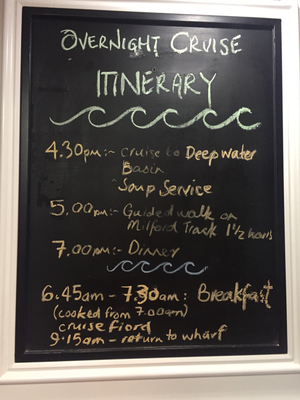 OVERNIGHT CRUISE
ITINERARY
4.30pm:- Cruise to Deep Water
Basin
Soup Service
5.00pm:- Guided walk on
Milford Track 1½ hours
7.00pm:- Dinner
6.45am - 7.30am: Breakfast
(cooked from 7.00am)
cruise fiord
9.15am - return to wharf